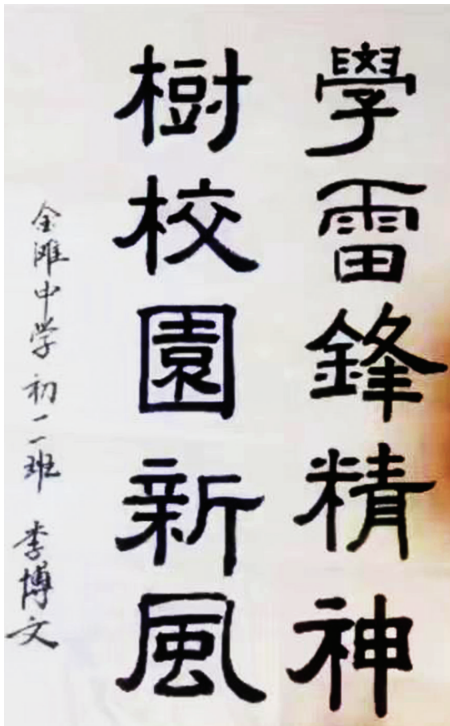 學雷鋒精神
樹校園新風
金滩中学 初一二班 李博文